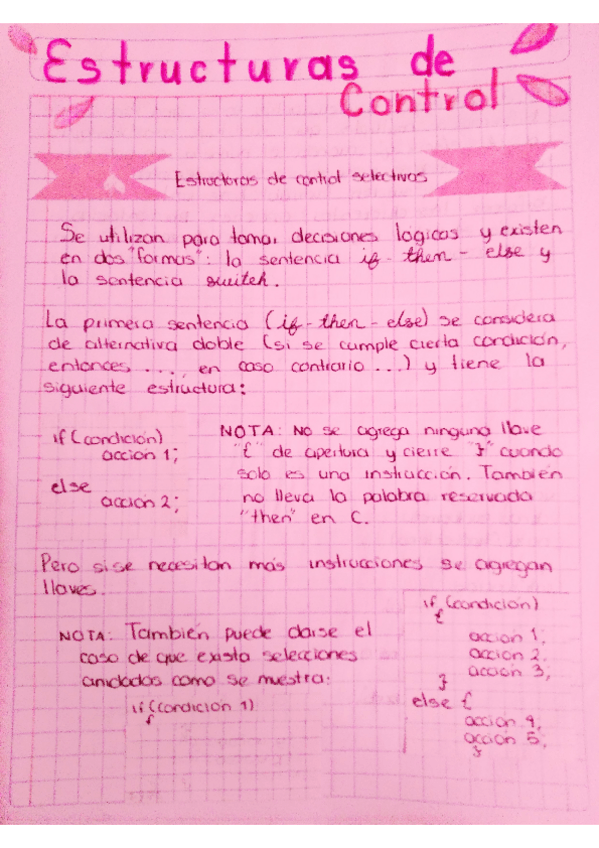 Estructuras de
Control
Estructuras de control selectivas
Se utilizan para tomar decisiones logicas y existen
en dos "formas": la sentencia if - then - else y
la sentencia switch.
La primera sentencia (if - then - else) se considera
de alternativa doble (si se cumple cierta condición,
entonces ..., en caso contrario ...) y tiene la
siguiente estructura:
if (condición)
acción 1;
else
acción 2;
NOTA: No se agrega ninguna llave
"{" de apertura y cierre "}" cuando
solo es una instrucción. También
no lleva la palabra reservada
"then" en C.
Pero si se necesitan más instrucciones se agregan
llaves.
NOTA: También puede darse el
caso de que exista selecciones
anidadas como se muestra:
if (condición 1)
{
if (condición)
{
acción 1;
acción 2;
acción 3;
}
else {
acción 4;
acción 5;
}